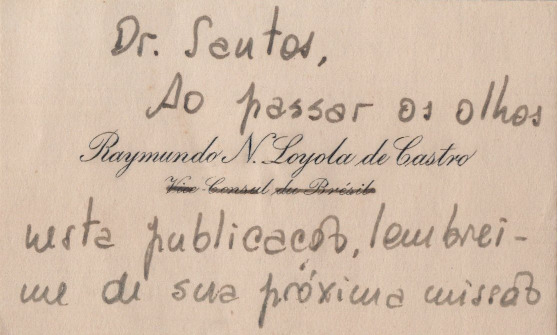 Dr. Santos,
Ao passar os olhos
Raymundo N. Loyola de Castro
Vice Consul du Brésil
nesta publicação, lembrei-
me de sua próxima missão